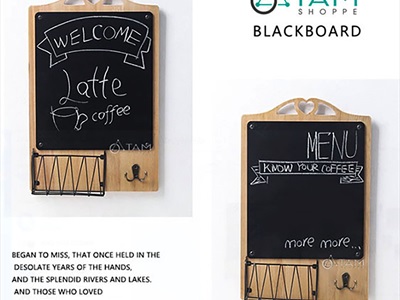 TAM
SHOPPE
BLACKBOARD
WELCOME
Latte
coffee
TAM
MENU
KNOW YOUR COFFEE
more more...
BEGAN TO MISS, THAT ONCE HELD IN THE
DESOLATE YEARS OF THE HANDS,
AND THE SPLENDID RIVERS AND LAKES.
AND THOSE WHO LOVED